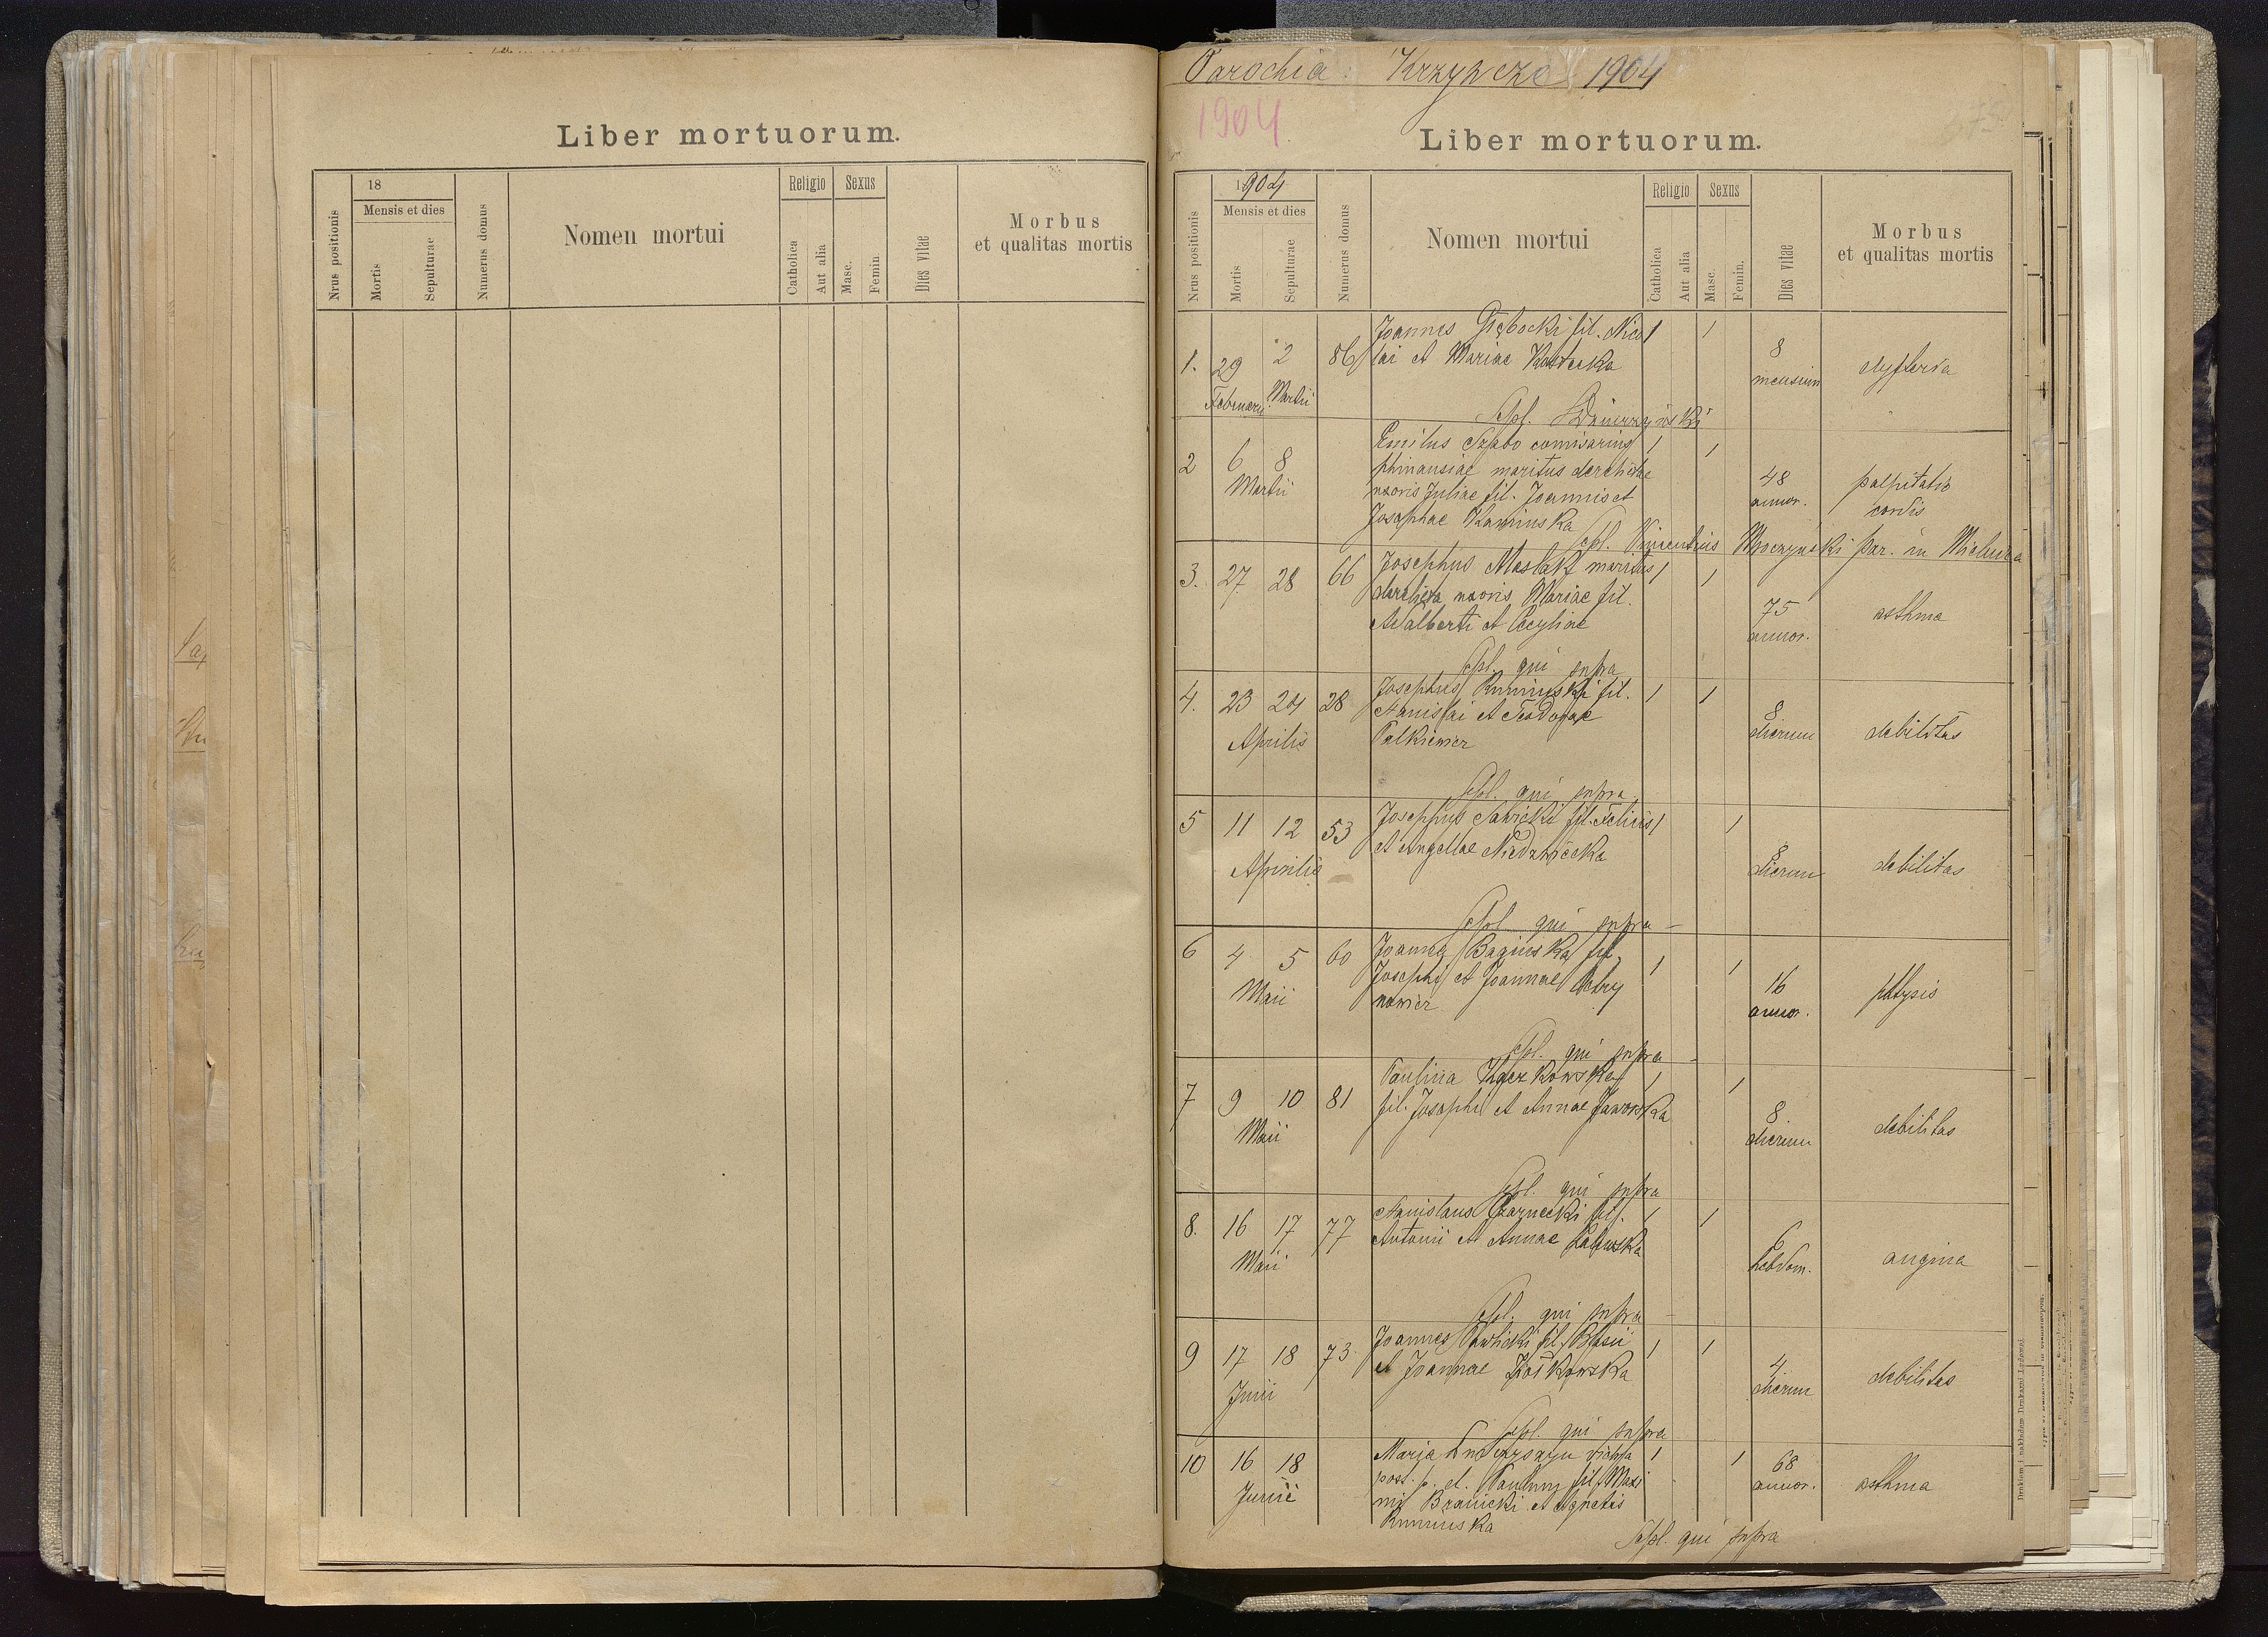 Liber mortuorum.
18
Religio
Sexus
Mensis et dies
Nrus positionis
Mortis
Sepulturae
Numerus domus
Nomen mortui
Catholica
Aut alia
Masc.
Femin.
Dies vitae
Morbus
et qualitas mortis
Parochia: Krzywcze 1904
1904
Liber mortuorum.
1904
Religio
Sexus
Mensis et dies
Nrus positionis
Mortis
Sepulturae
Numerus domus
Nomen mortui
Catholica
Aut alia
Masc.
Femin.
Dies vitae
Morbus
et qualitas mortis
1. 29 2 86 Joannes Głębocki fil. Nico 1 1 8
Februarii Martii lai et Mariae mensium dyfteria
Sepl.
2 6 8 Emilus Szabo comisarius 1 1 48 palpitatio
Martii maritus derelictae annor. cordis
uxoris Juliae fil. Joannis et
Josephae Kaminska
Sepl. Vincentius par. in
3. 27 28 66 Josephus Maslak maritus 1 1 75 asthma
derelicta uxoris Mariae fil. annor.
Adalberti et Cecyliae
Sepl. qui supra
4. 23 24 28 Josephus fil. 1 1 8
Aprilis Stanislai et Teodorae dierum debilitas
Palkiewicz
Sepl. qui supra
5 11 12 53 Josephus Sawicki fil. Felicis 1 1 8
Aprilis et Angellae Niedzwiecka dierum debilitas
Sepl. qui supra
6 4 5 60 Joanna Baginska fil. 1 1 16
Maii Josephi et Joannae annor. phtysis
nowicz
Sepl. qui supra
7 9 10 81 Paulina 1 1 8
Maii fil. Josephi et Annae Jaworska dierum debilitas
Sepl. qui supra
8. 16 17 77 Stanislaus Czarnecki fil. 1 1 6
Maii Antonii et Annae hebdom. angina
Sepl. qui supra
9 17 18 73 Joannes Pawlicki fil. Blasii 1 1 4
Junii et Joannae dierum debilitas
Sepl. qui supra
10 16 18 Maria vidua 1 1 68
Junii post p. d. fil. Maxi annor. asthma
mi Branicki et Agnetis
Sepl. qui supra